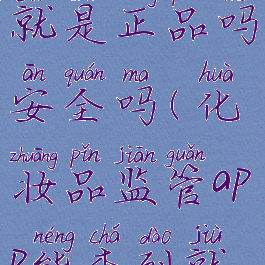 就是正品吗
ān quán ma huà
安全吗(化
zhuāng pǐn jiān guǎn
妆品监管ap
néng chá dào jiù